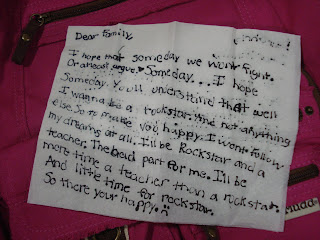 Dear Family,
I hope that someday we wont fight.
Or atleast argue. Someday... I hope
Someday. You'll understand that well
I wanna be a rockstar. And not anything
else. So to make you happy. I wont follow
my dreams at all. I'll be Rockstar and a
teacher. The bad part for me. I'll be
more time a teacher than a rockstar.
And little time for rockstar.
So there your happy.